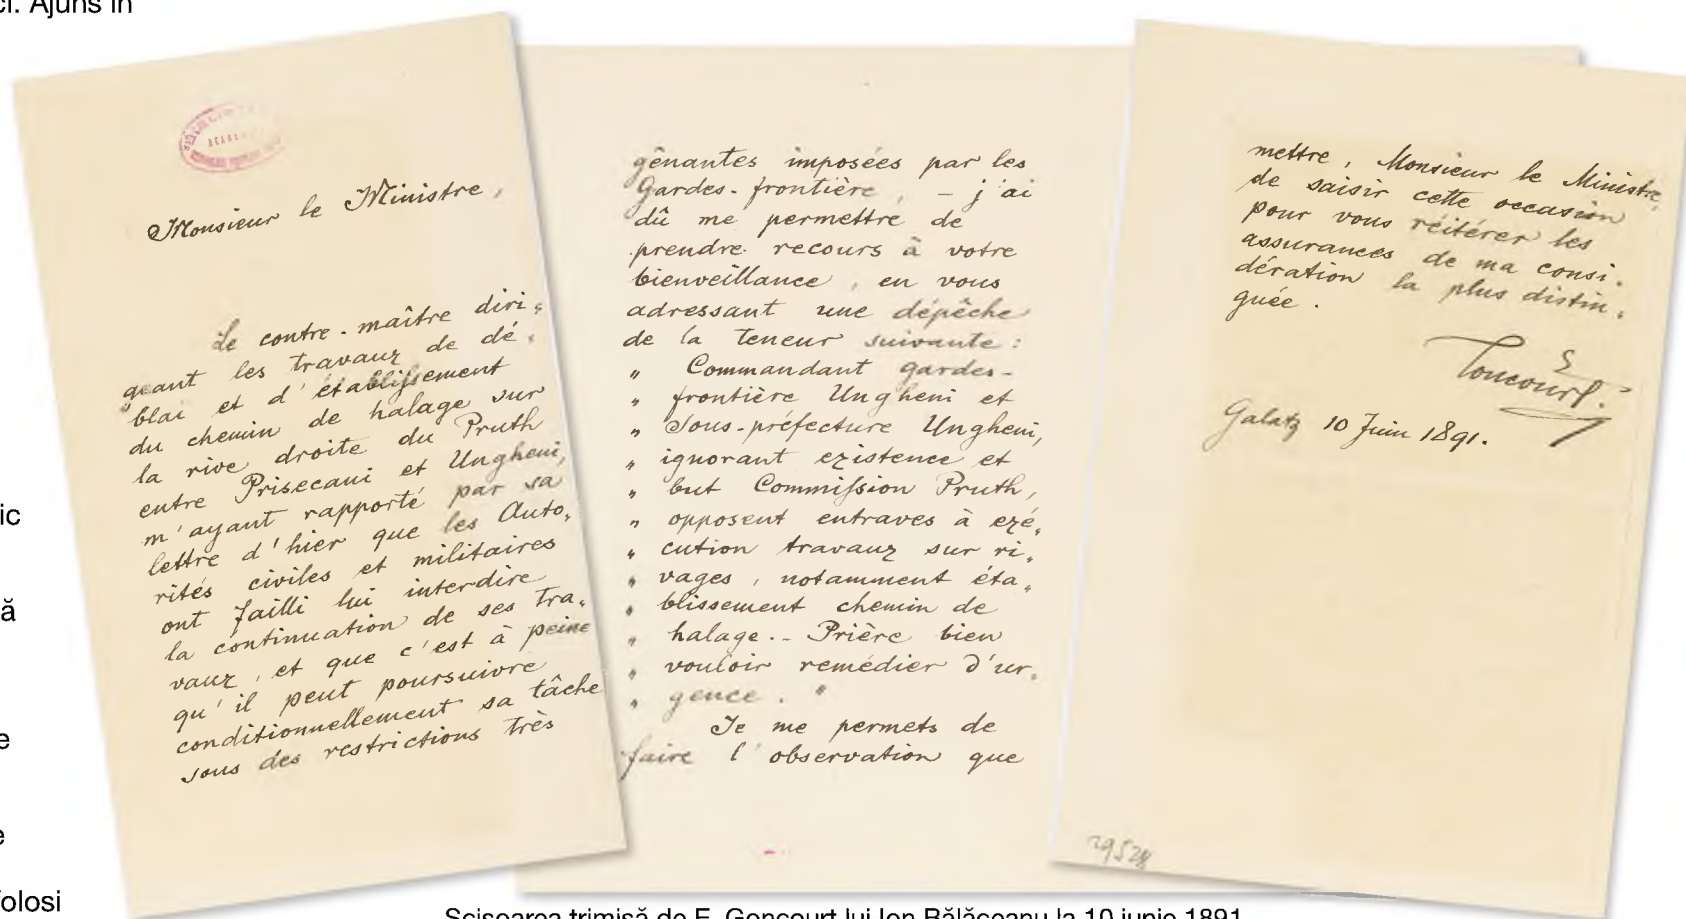 ci. Ajuns în
ic
ă
e
e
folosi
Monsieur le Ministre,
Le contre-maître diri-
geant les travaux de dé-
blai et d'établissement
du chemin de halage sur
la rive droite du Pruth
entre Prisecani et Ungheni,
m'ayant rapporté par sa
lettre d'hier que les Auto-
rités civiles et militaires
ont failli lui interdire
la continuation de ses tra-
vaux, et que c'est à peine
qu'il peut poursuivre
conditionnellement sa tâche
sous des restrictions très
gênantes imposées par les
Gardes-frontière, – j'ai
dû me permettre de
prendre recours à votre
bienveillance, en vous
adressant une dépêche
de la teneur suivante:
" Commandant gardes-
" frontière Ungheni et
" Sous-préfecture Ungheni,
" ignorant existence et
" but Commission Pruth,
" opposent entraves à exé-
" cution travaux sur ri-
" vages, notamment éta-
" blissement chemin de
" halage. - Prière bien
" vouloir remédier d'ur-
" gence. "
Je me permets de
faire l'observation que
mettre, Monsieur le Ministre,
de saisir cette occasion
pour vous réitérer les
assurances de ma consi-
dération la plus distin-
guée.
Galatz 10 Juin 1891.
29528
Scisoarea trimisă de E. Goncourt lui Ion Bălăceanu la 10 iunie 1891